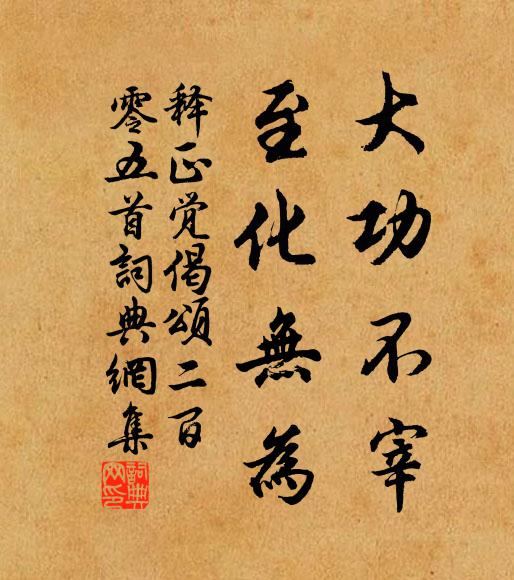 大功不宰
至化無為
释正觉偈頌二百
零五首詞典網集
詞典网印